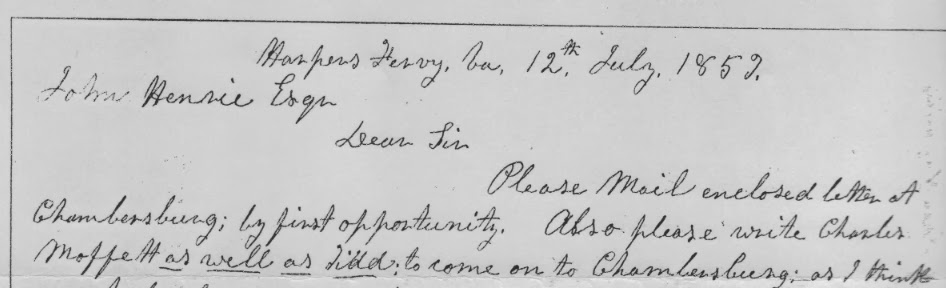 Harpers Ferry, Va, 12th, July, 1859.
John Henrie Esqr
Dear Sir
Please Mail enclosed letter at
Chambersburg; by first opportunity. Also please write Charles
Moffett as well as Tidd; to come on to Chambersburg; as I think